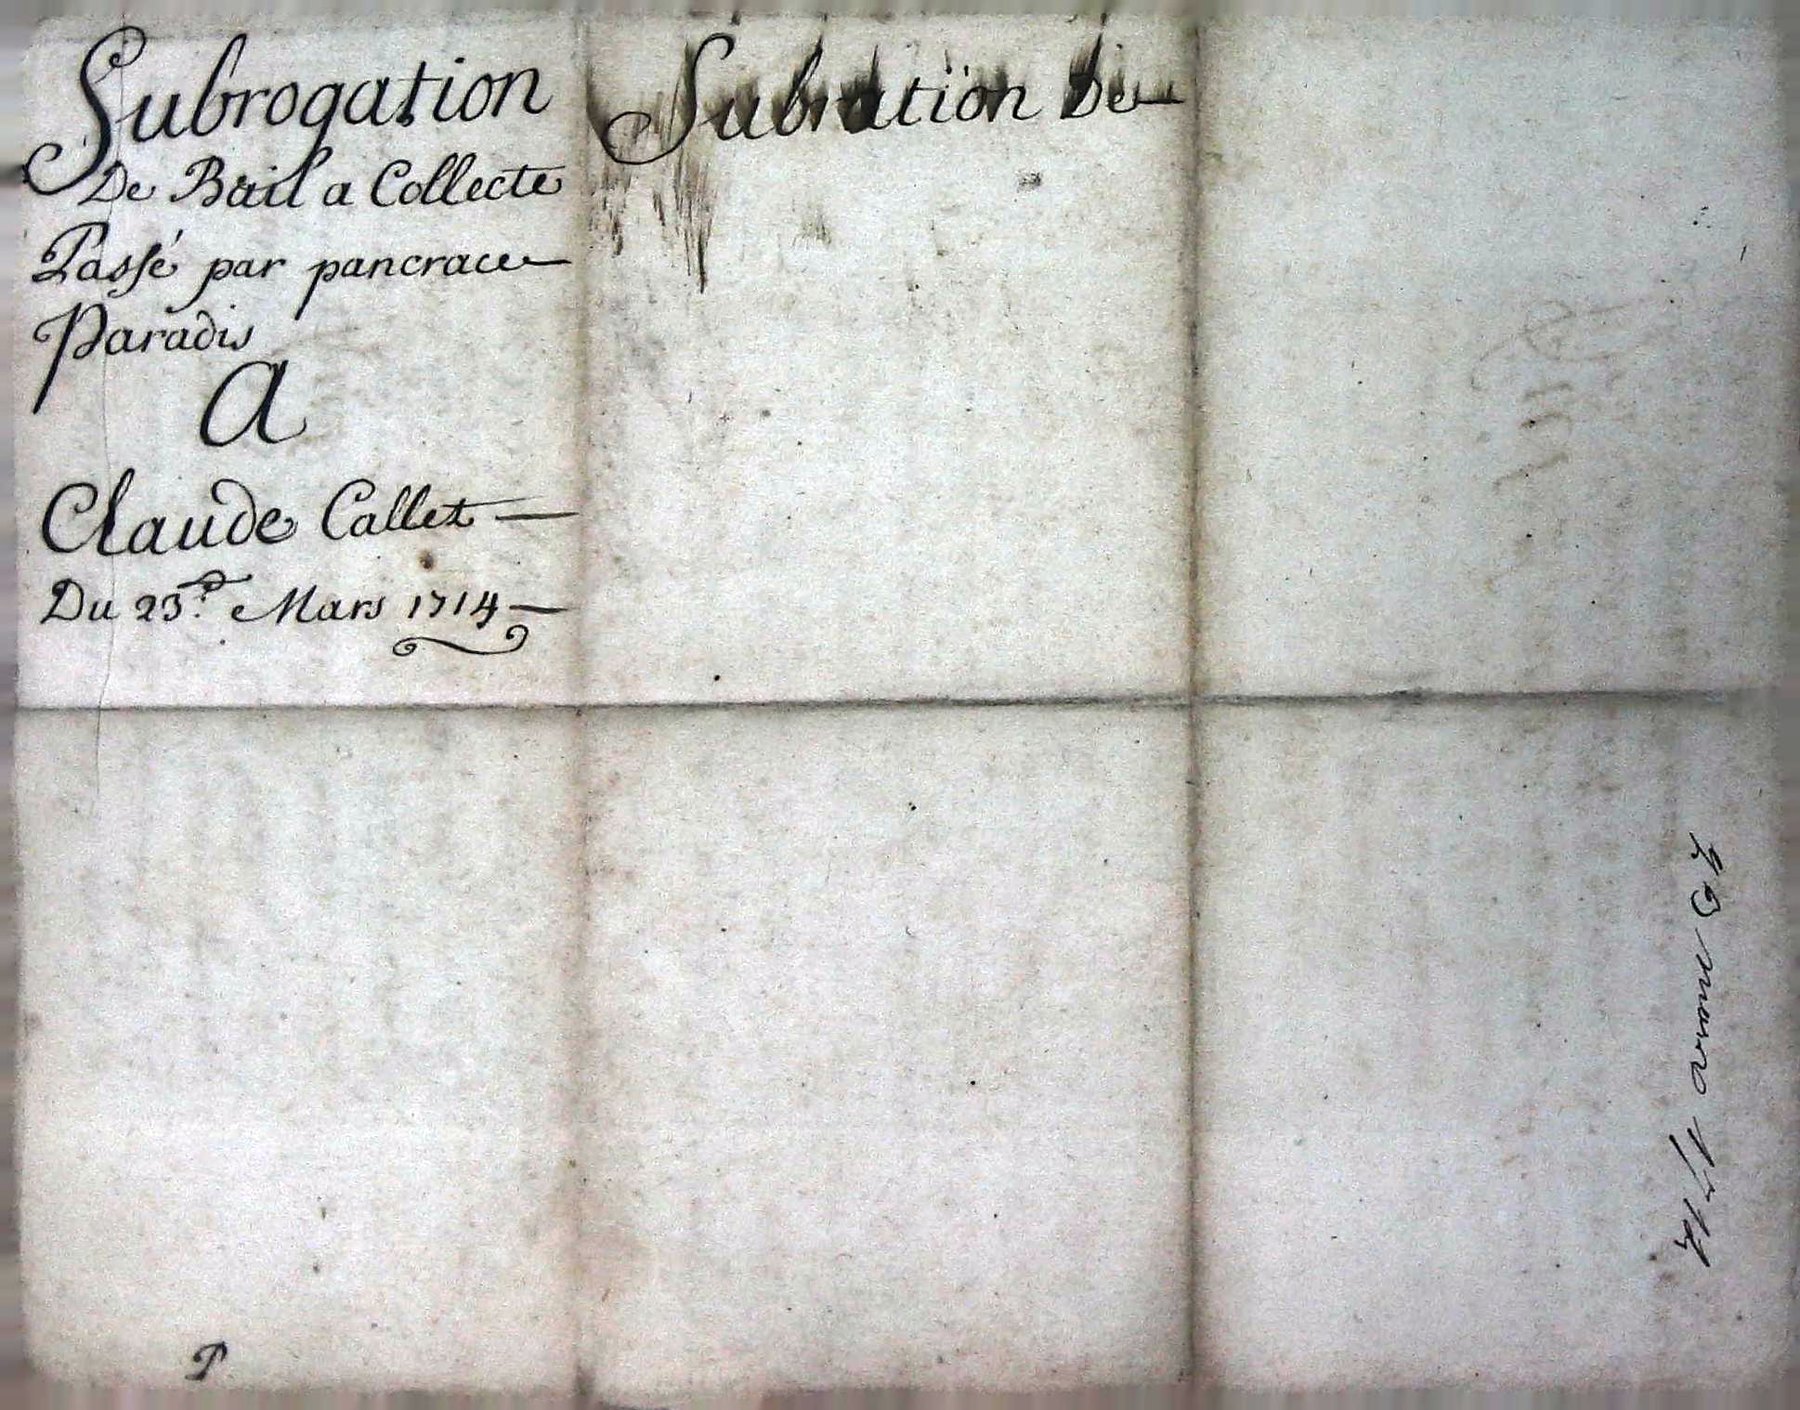 Subrogation
De Bail a Collecte
Passé par pancrace
Paradis
A
Claude Callet
Du 23.e Mars 1714
Subration De
mars 1714
P